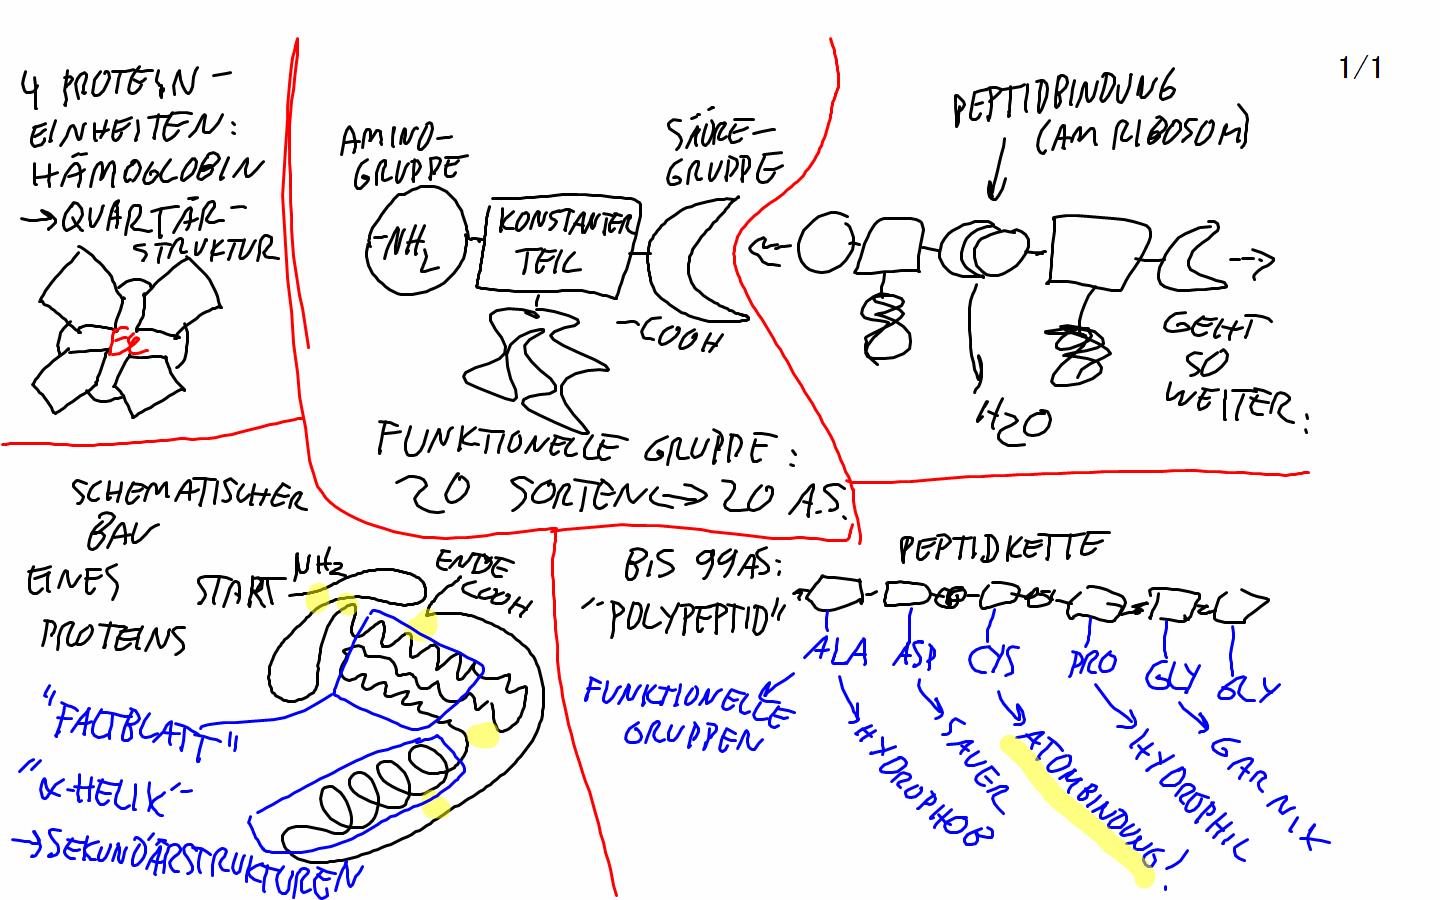 1/1
4 PROTEIN-
EINHEITEN:
HÄMOGLOBIN
→ QUARTÄR-
STRUKTUR
Fe
AMINO-
GRUPPE
SÄURE-
GRUPPE
-NH2
KONSTANTER
TEIL
-COOH
FUNKTIONELLE GRUPPE:
20 SORTEN <-> 20 A.S.
PEPTIDBINDUNG
(AM RIBOSOM)
H2O
GEHT
SO
WEITER:
SCHEMATISCHER
BAU
EINES
PROTEINS
START
NH2
ENDE
COOH
"FALTBLATT"
"α-HELIX"-
→ SEKUNDÄRSTRUKTUREN
BIS 99AS:
"POLYPEPTID"
PEPTIDKETTE
ALA ASP CYS PRO GLY GLY
FUNKTIONELLE
GRUPPEN
HYDROPHOB
SAUER
ATOMBINDUNG!
HYDROPHIL
GAR NIX